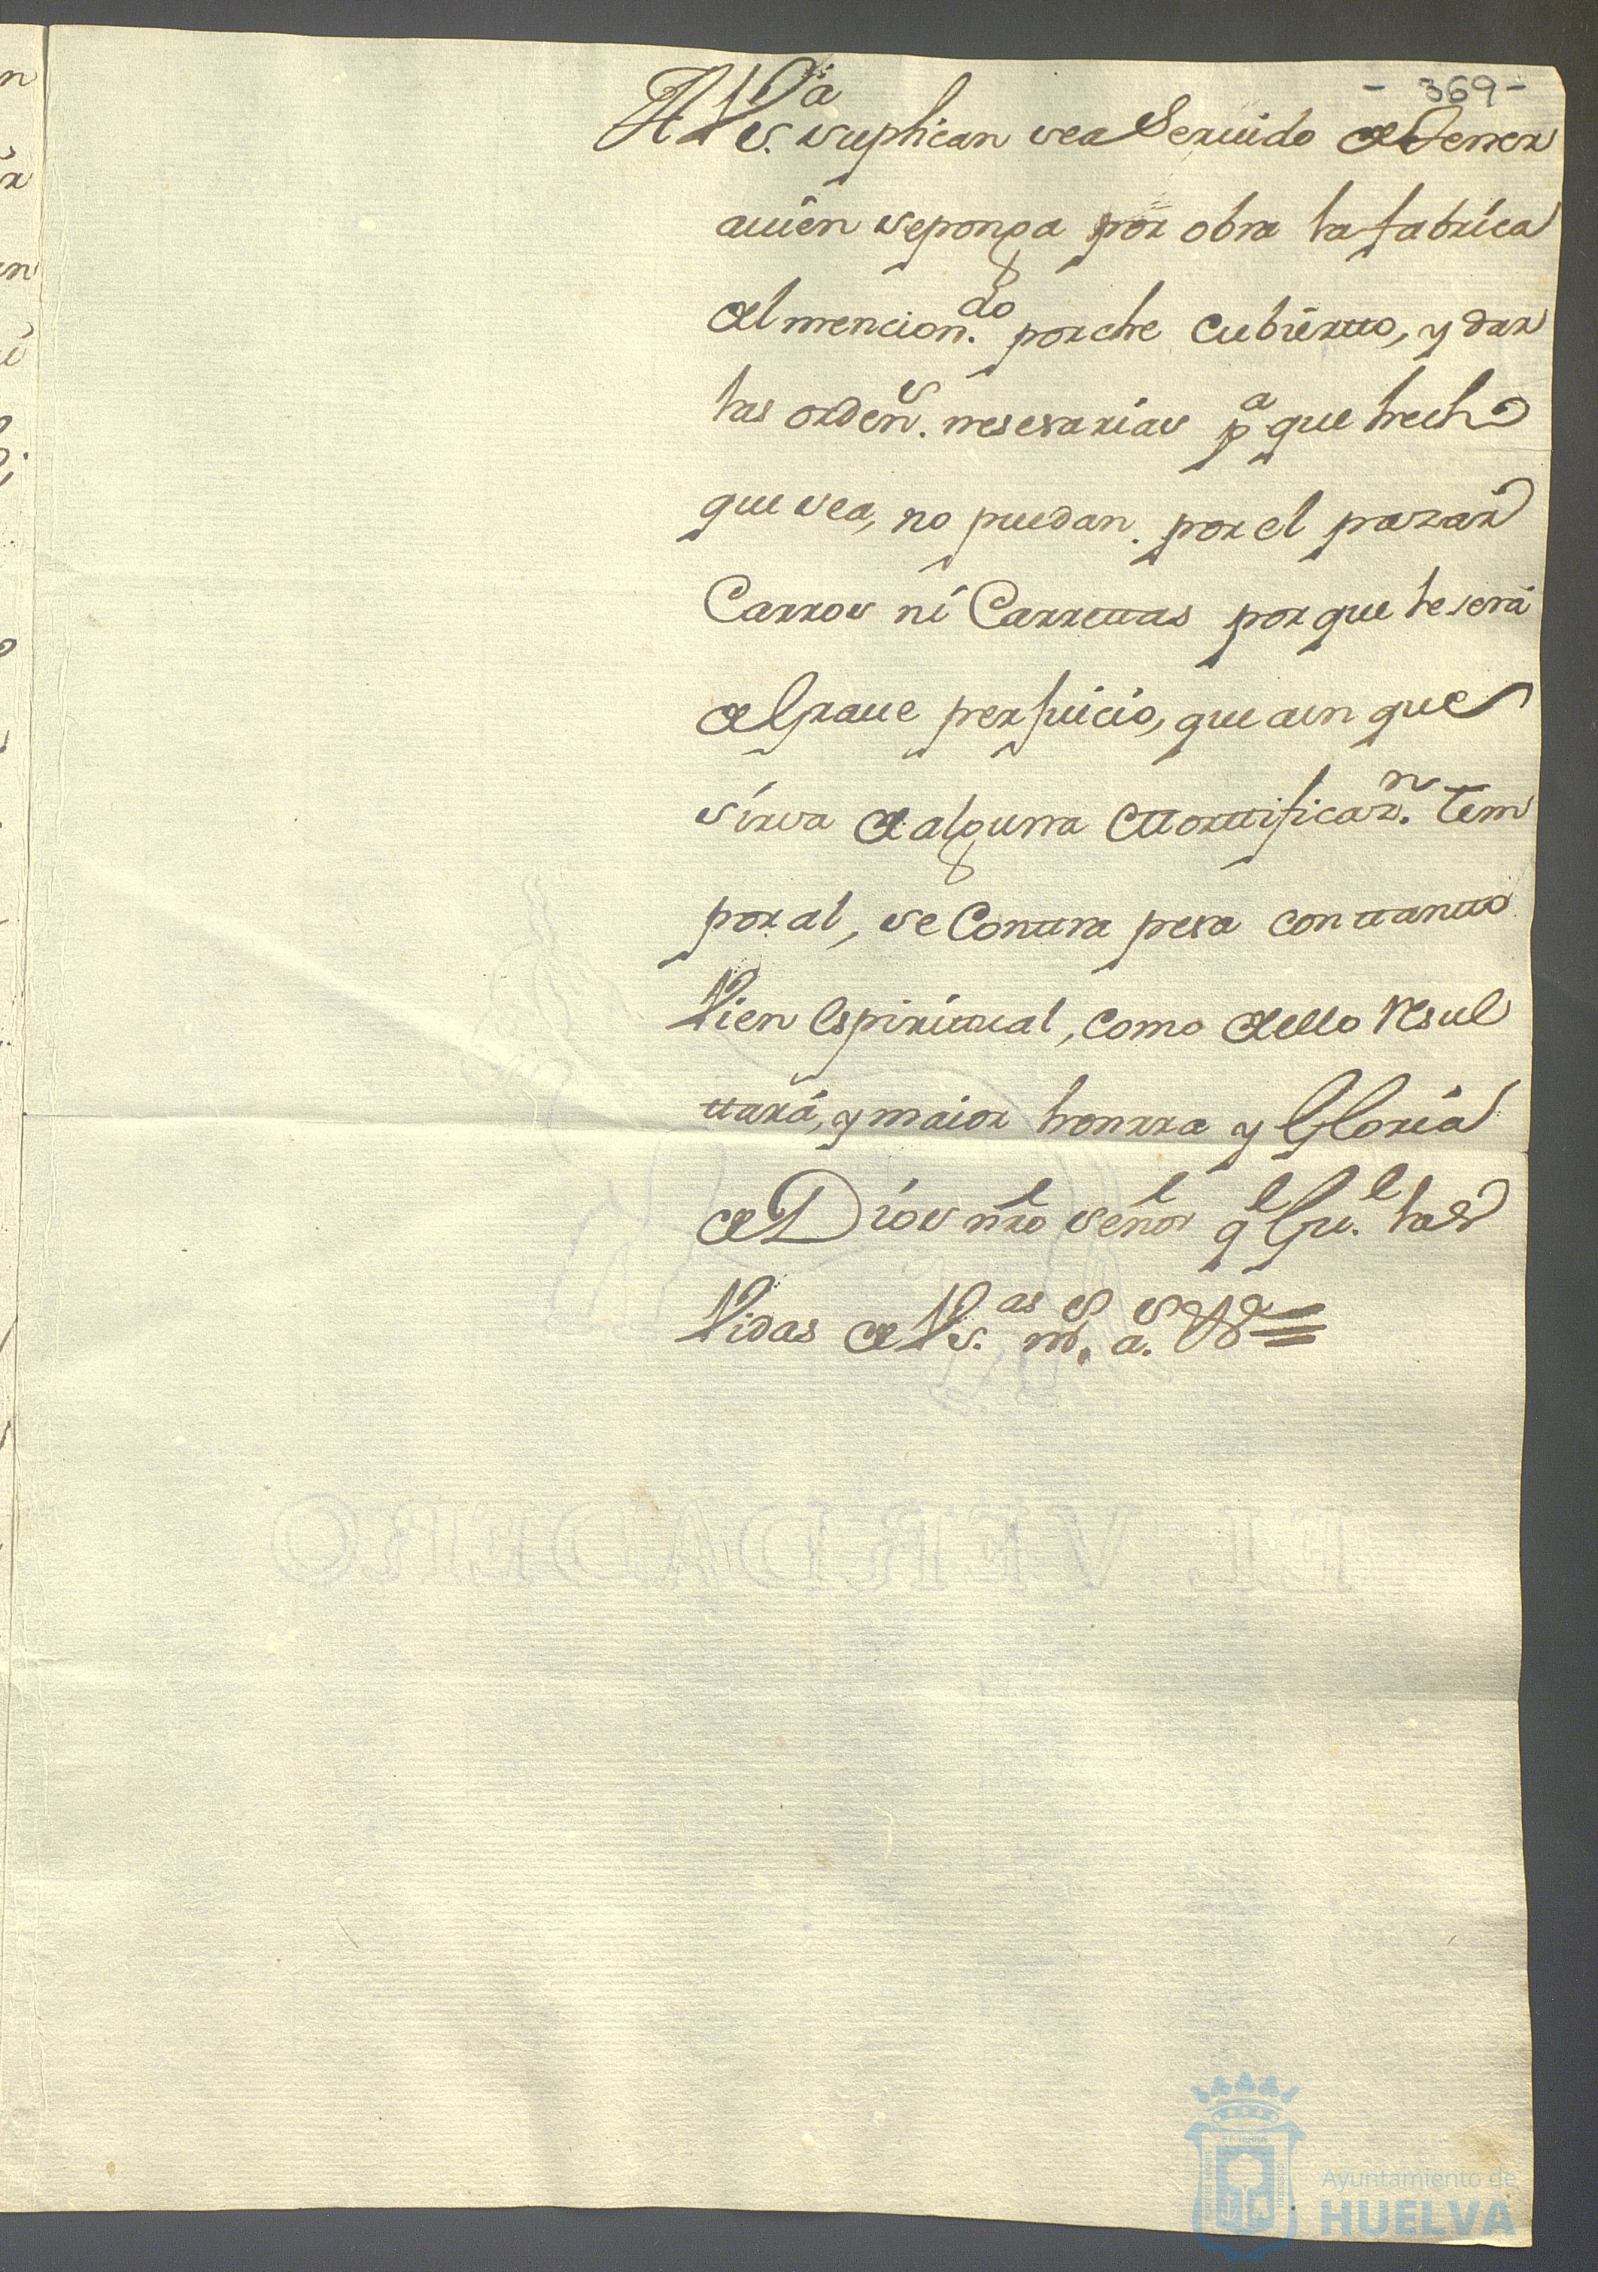 - 369 -
A V.S.ª suplican sea Seruido de Tener
auien se ponga por obra la fabrica
del mencion.do porche cubiertto, y dar
las orden.s nesesarias p.a que hecho
que sea, no puedan por el pazar
Carros ni Carrettas por que le será
de Graue perjuicio, que aun que
sirva de alguna Morttificaz.n tem
poral, se Conttra pesa con ttantto
Vien Espirittual, como de ello Resul
ttará, y maior honrra y Gloria
de Dios nro señor q Gu.e las
Vidas de V.S.as m.s a.s
EL VERDADERO
Ayuntamiento de
HUELVA